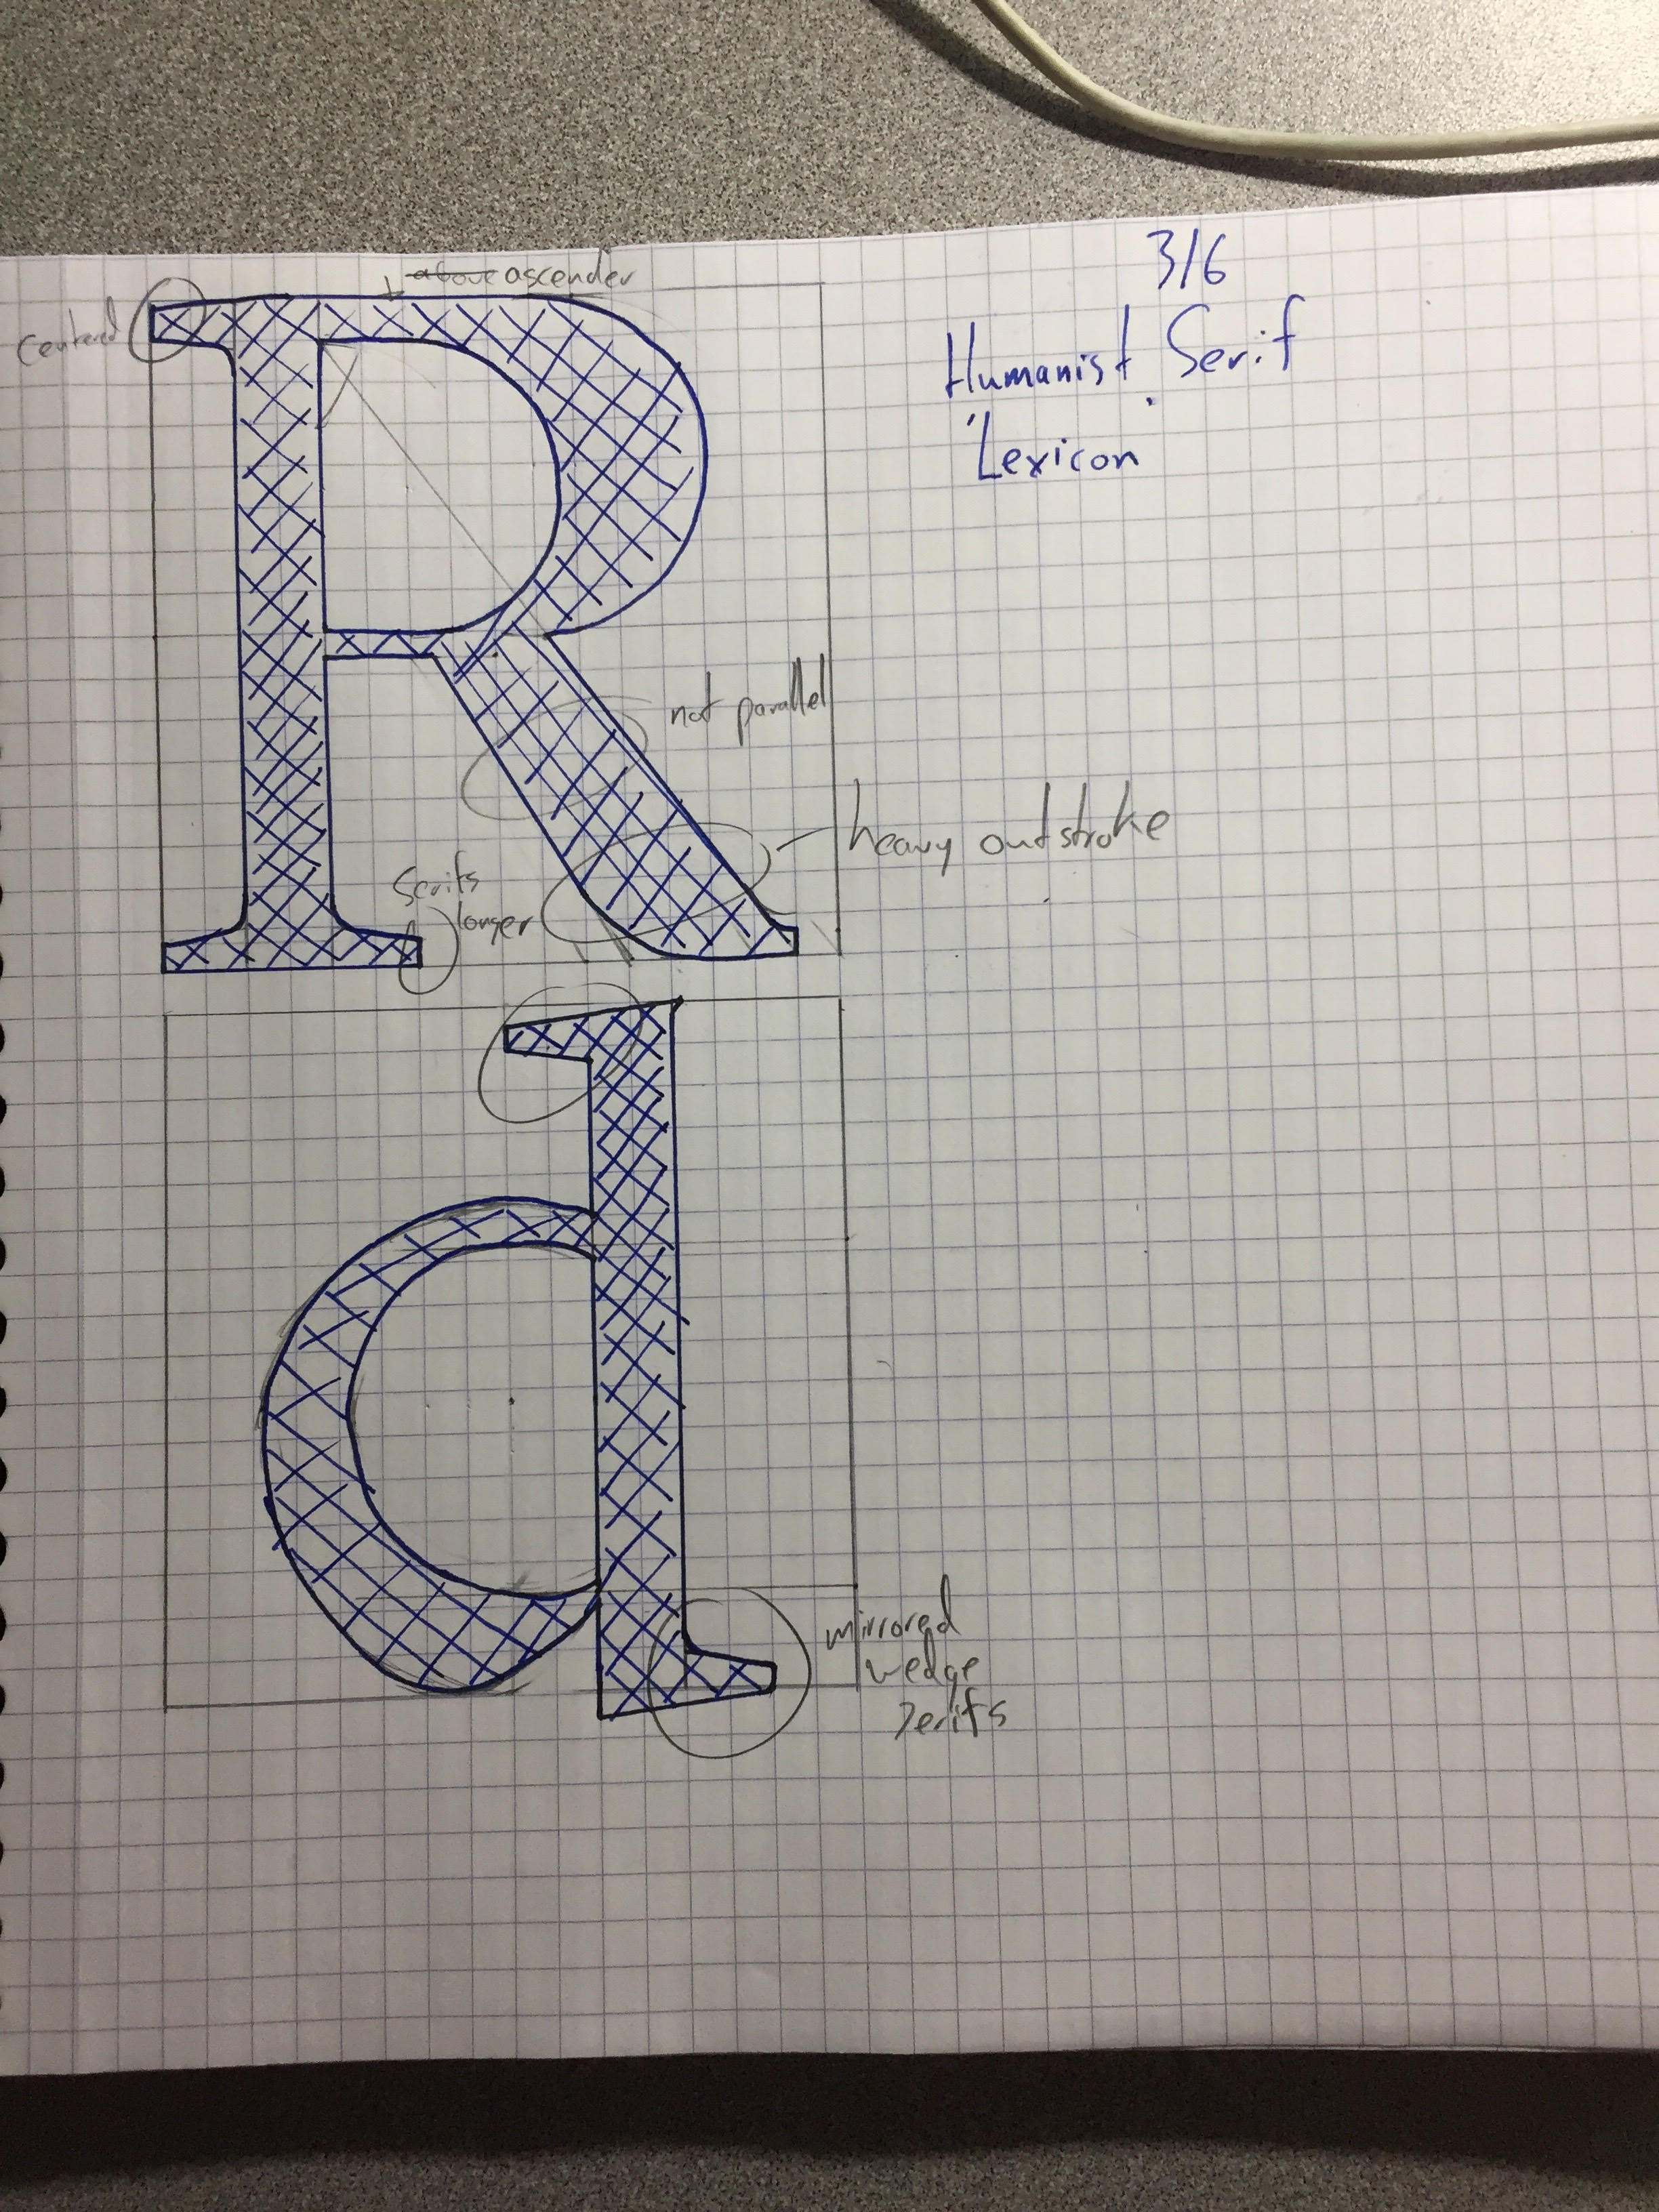 3/6
Humanist Serif
'Lexicon'
above ascender
centered
R
not parallel
heavy outstroke
Serifs
longer
d
mirrored
wedge
serifs